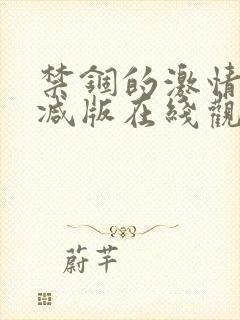 禁锢的激情
减版在线觀
蔚芊